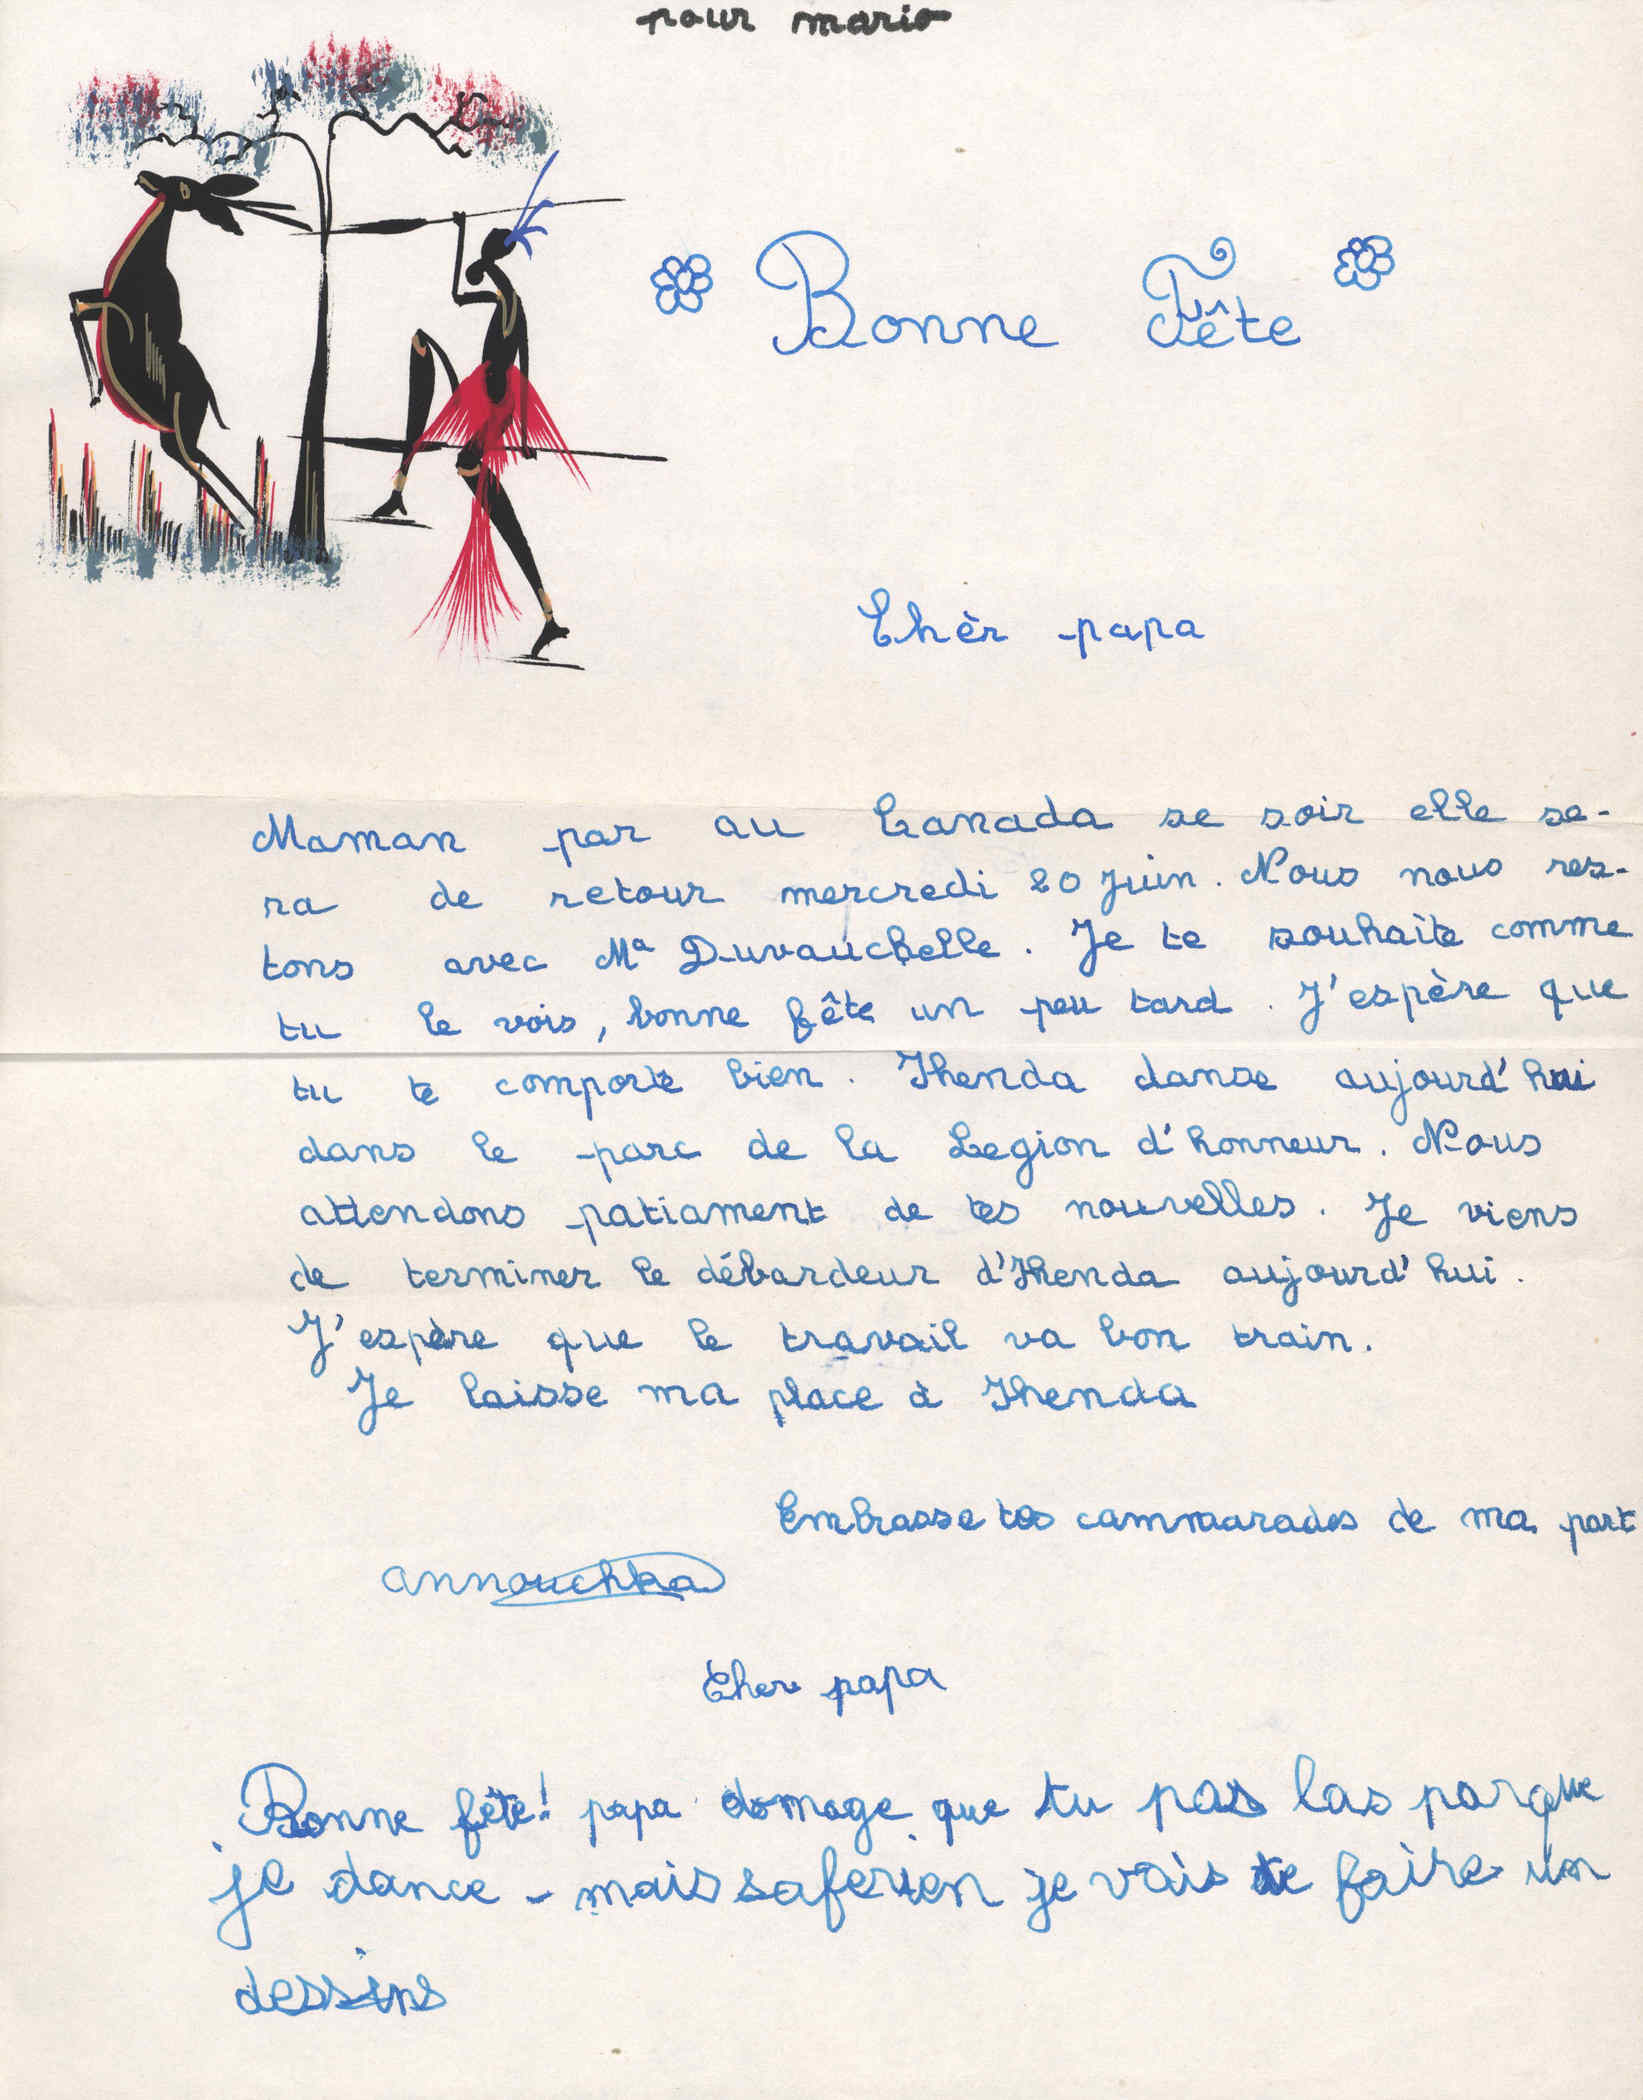 pour mario
Bonne Fête
Chèr papa
Maman par au Canada se soir elle se-
ra de retour mercredi 20 juin. Nous nous res-
tons avec Ma Duvauchelle. Je te souhaite comme
tu le vois, bonne fête un peu tard. J'espère que
tu te comporte bien. Thenda danse aujourd'hui
dans le parc de la Legion d'honneur. Nous
attendons patiament de tes nouvelles. Je viens
de terminer le débardeur d'Thenda aujourd'hui.
J'espère que le travail va bon train.
Je laisse ma place à Thenda
Embrasse tes cammarades de ma part
annouchka
Cher papa
Bonne fête! papa domage que tu pas las parque
je dance - mais saferien je vais te faire un
dessins